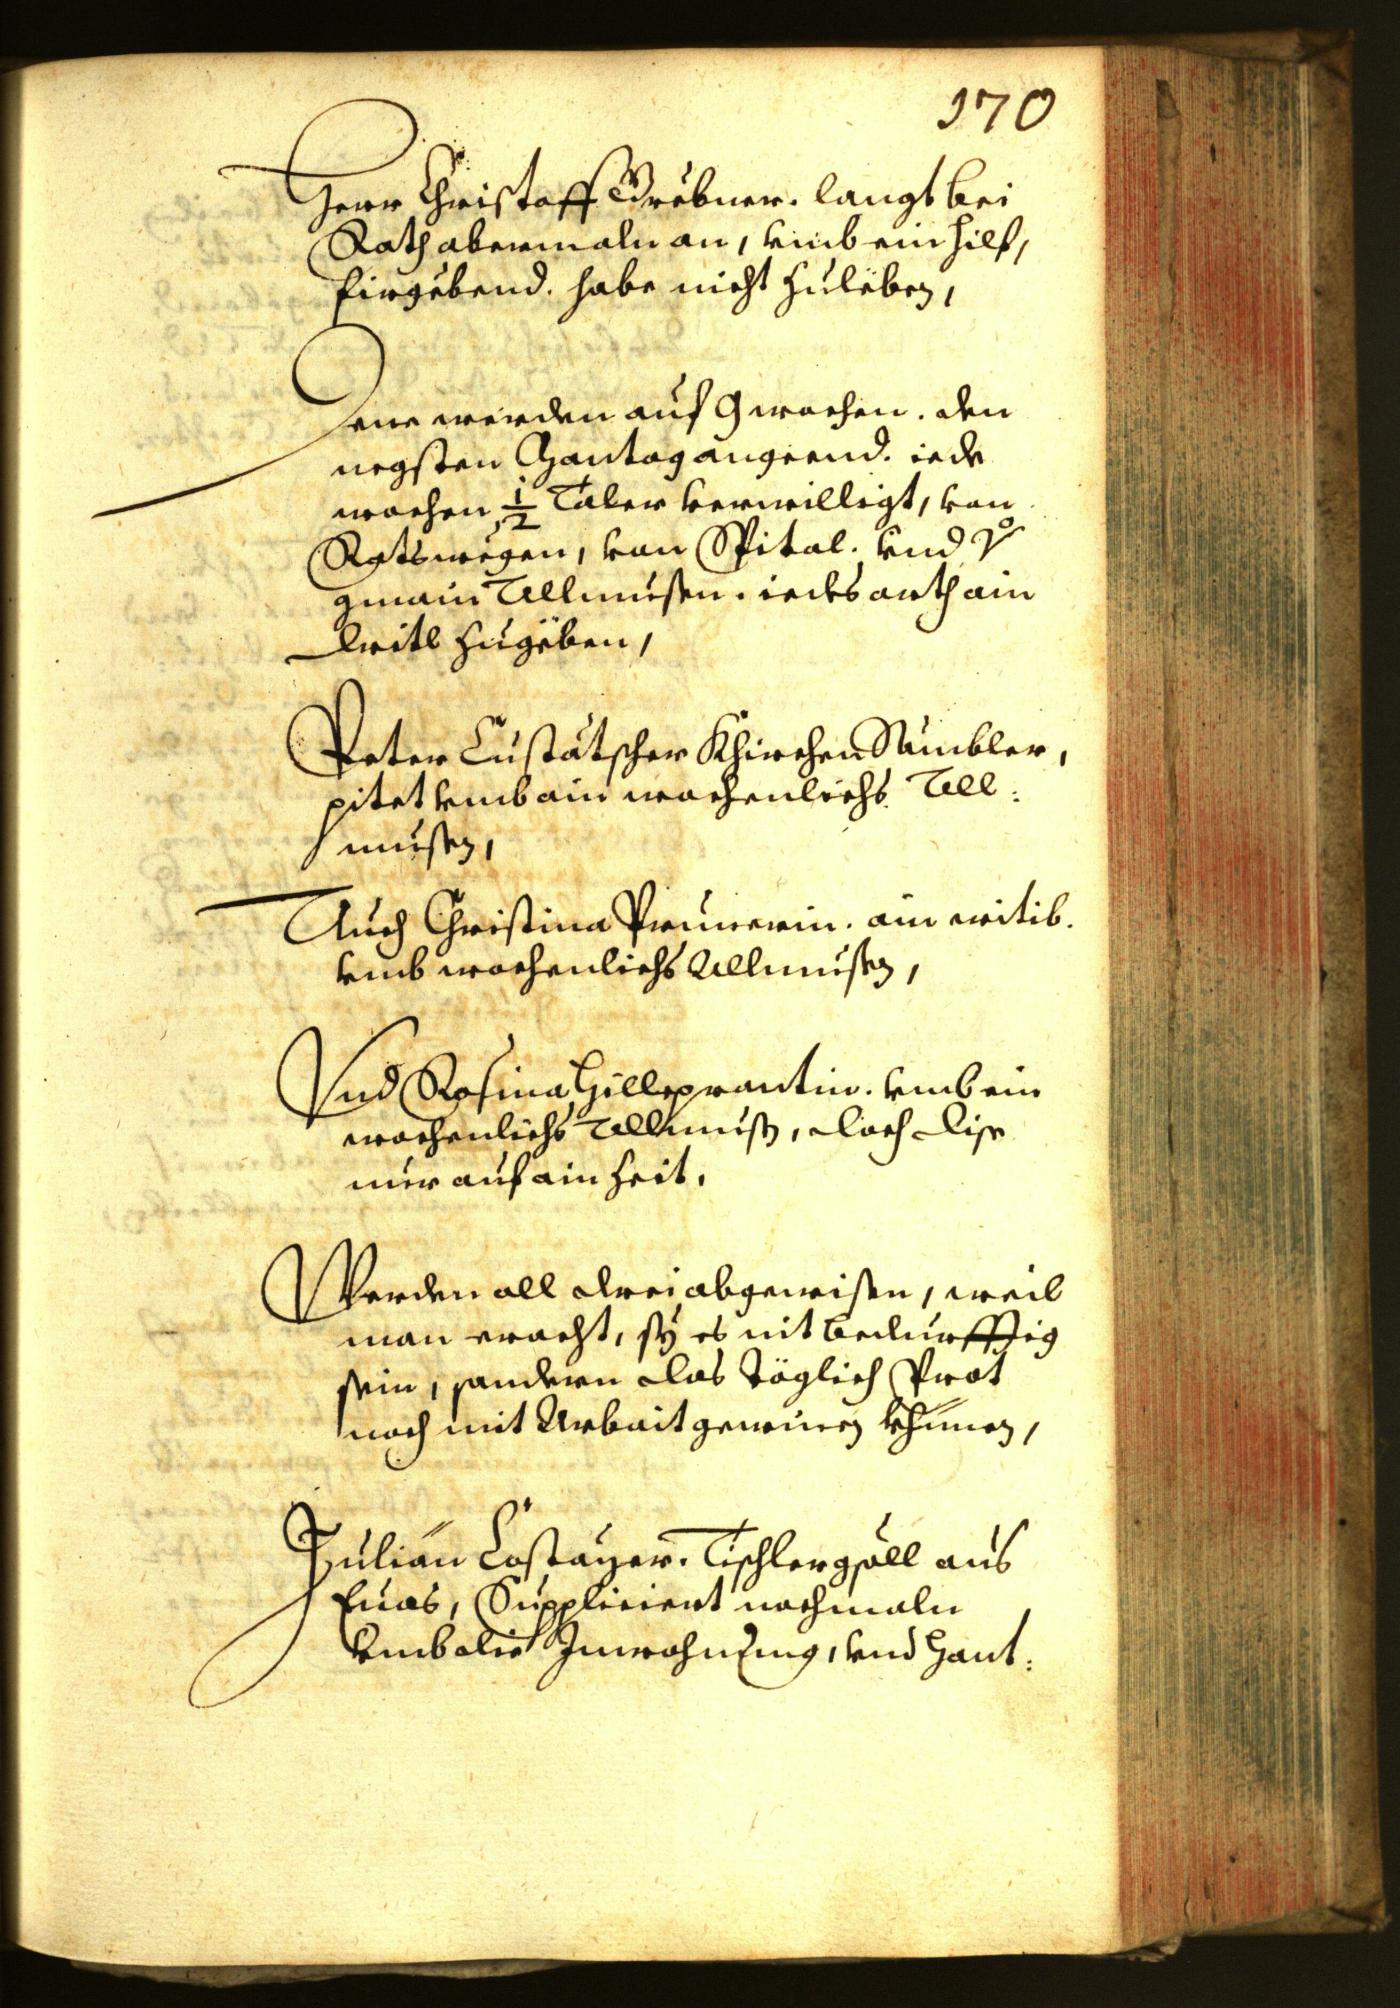 170
Herr Christoff Grebner. langt bei
Rath abermaln an, vmb ein hilf,
firgebend. habe nicht zuleben,
Jme werden auf 9 wochen. den
negsten Montag angeend. iede
wochen 1/2 Taler verwilligt, von
Rats wegen, von Spital. vnd
gmain Allmusen. iedes orth ain
dritl zugeben,
Peter Custatscher Khirchen Sambler,
pitet vmb ain wochenlichs All:
musen,
Auch Christina Prunerin. ain witib.
vmb wochenlichs Allmusen,
Vnd Rosina Hilleprantin. vmb ein
wochenlichs Allmusen, doch dise
nur auf ain Zeit.
Werden all drei abgewisen, weil
man eracht, sy es nit bedurfftig
sein, sondern das töglich Prot
noch mit Arbait gewinen khinen,
Julian Costayer. Tischlergsöll aus
Euas, Suppliciert nochmaln
vmb die Jnwohnung, vnd Hant: